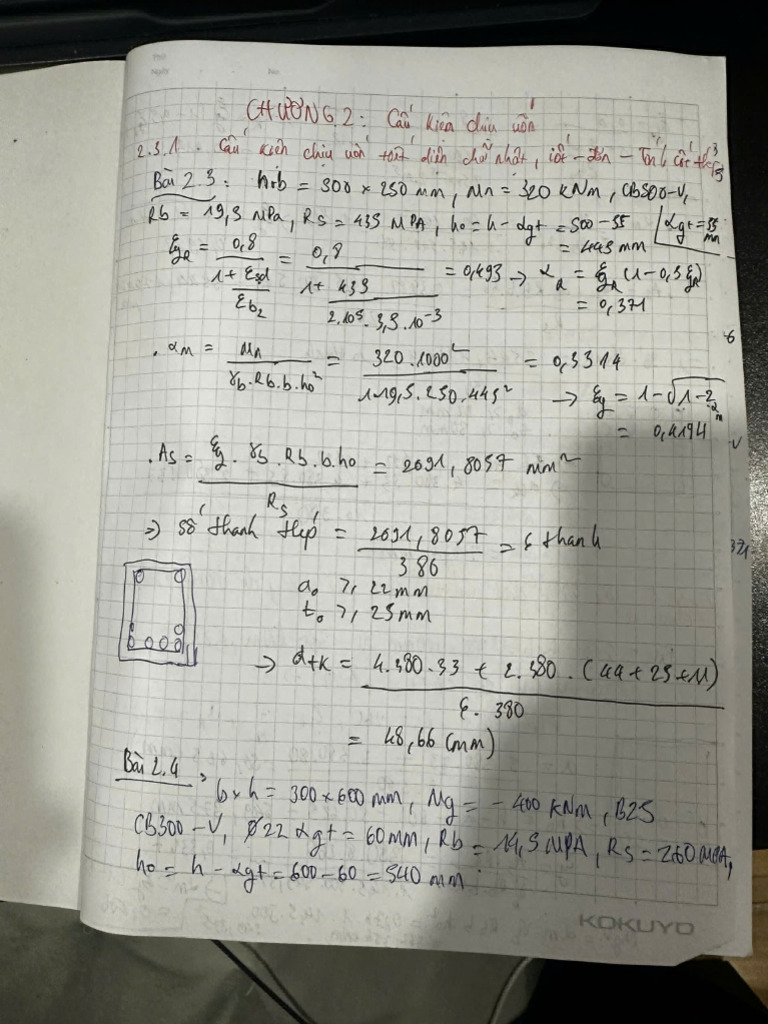 CHƯƠNG 2: Cấu kiện chịu uốn
2.3.1. Cấu kiện chịu uốn tiết diện chữ nhật, cốt đơn - Tính cốt thép
Bài 2.3: h×b = 300 × 250 mm, Mn = 320 kNm, CB500-V,
Rb = 19,5 MPa, Rs = 435 MPA, ho = h - agt = 500 - 55 agt = 55 mm
= 445 mm
ξR = 0,8 / (1 + εsd / εb2) = 0,8 / (1 + 435 / (2.10⁵. 3,5.10⁻³)) = 0,493 → αR = ξR (1 - 0,5 ξR)
= 0,371
. αm = Mn / (γb.Rb.b.ho²) = 320.1000² / (1.19,5.250.445²) = 0,3314
→ ξ = 1 - √(1 - 2αm)
= 0,4194
. As = ξ. γb. Rb.b.ho / Rs = 2091,8057 mm²
⇒ số thanh thép = 2091,8057 / 380 = 6 thanh
ao ≥ 22 mm
to ≥ 25 mm
⇒ atk = (4.380.33 + 2.380.(44 + 25 + 11)) / (6. 380)
= 48,66 (mm)
Bài 2.4
b×h = 300×600 mm, Mg = -400 kNm, B25
CB300-V, Ø22 agt = 60mm, Rb = 14,5 MPA, Rs = 260 MPA,
ho = h - agt = 600 - 60 = 540 mm
KOKUYO